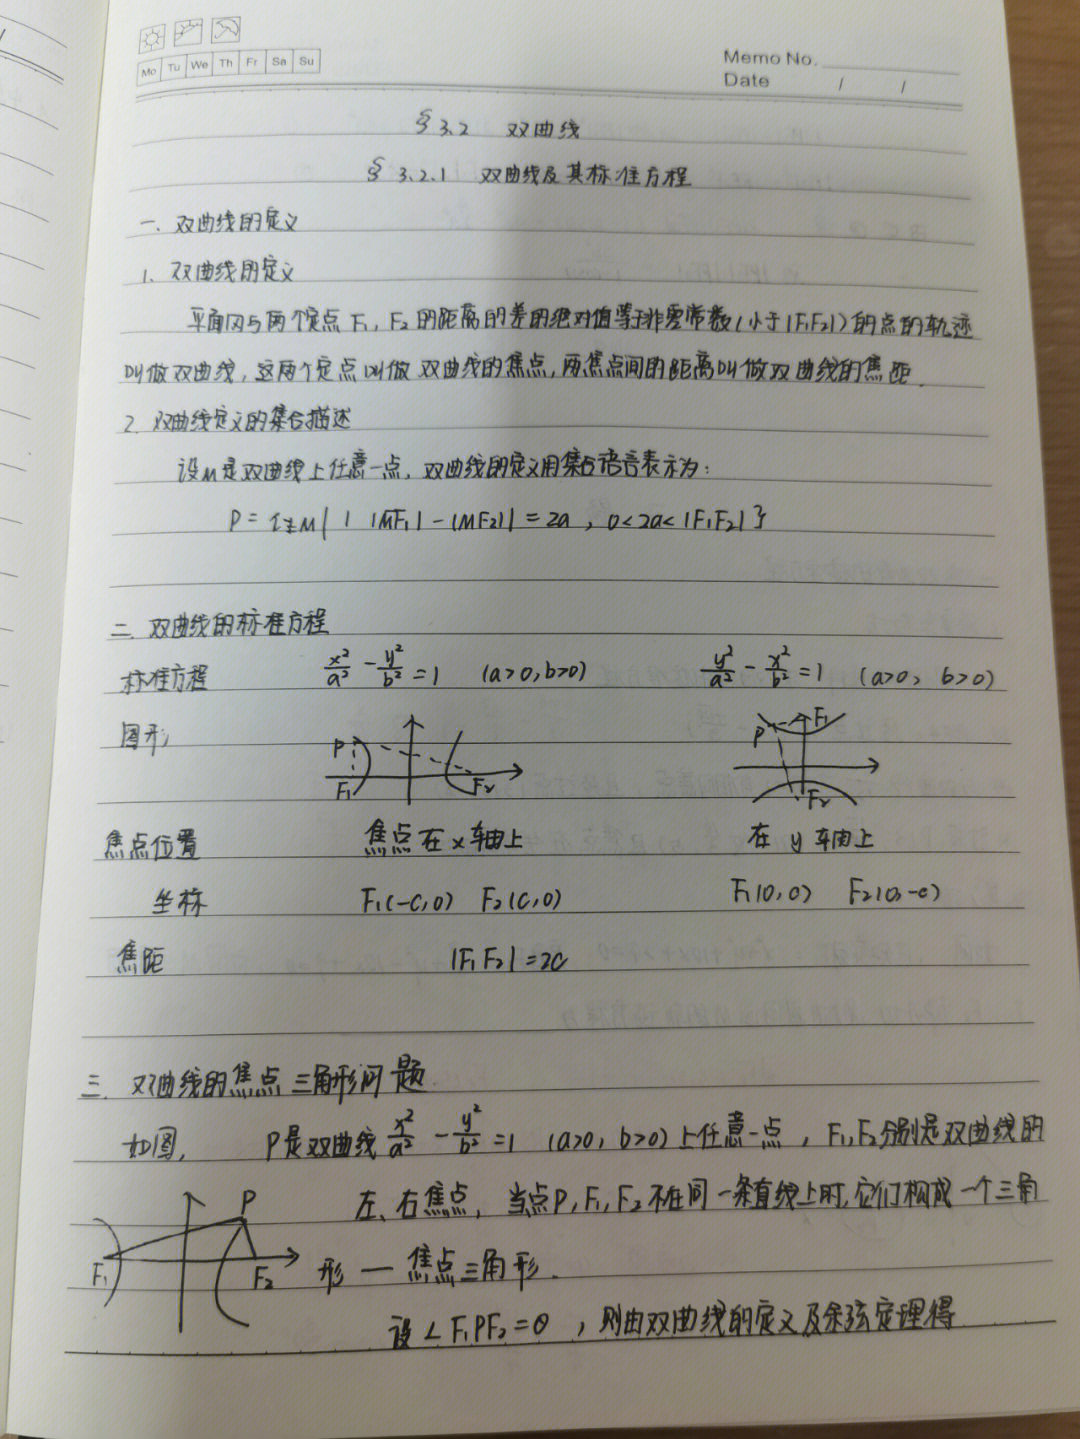 Mo Tu We Th Fr Sa Su
Memo No.
Date / /
§ 3.2 双曲线
§ 3.2.1 双曲线及其标准方程
一、双曲线的定义
1. 双曲线的定义
平面内与两个定点 F₁, F₂ 的距离的差的绝对值等于非零常数(小于|F₁F₂|)的点的轨迹
叫做双曲线, 这两个定点叫做双曲线的焦点, 两焦点间的距离叫做双曲线的焦距.
2. 双曲线定义的集合描述
设M是双曲线上任意一点, 双曲线的定义用集合语言表示为:
P = {M| | |MF₁| - |MF₂|| = 2a , 0<2a<|F₁F₂|}
二、双曲线的标准方程
标准方程 x²/a² - y²/b² = 1 (a>0, b>0) y²/a² - x²/b² = 1 (a>0, b>0)
图形 P F₁ F₂ P F₁ F₂
焦点位置 焦点在 x 轴上 在 y 轴上
坐标 F₁(-c,0) F₂(c,0) F₁(0,c) F₂(0,-c)
焦距 |F₁F₂| = 2c
三、双曲线的焦点三角形问题
如图, P是双曲线 x²/a² - y²/b² = 1 (a>0, b>0) 上任意一点, F₁, F₂分别是双曲线的
左、右焦点, 当点P, F₁, F₂不在同一条直线上时, 它们构成一个三角
P F₁ F₂
形 — 焦点三角形.
设∠F₁PF₂=θ , 则由双曲线的定义及余弦定理得